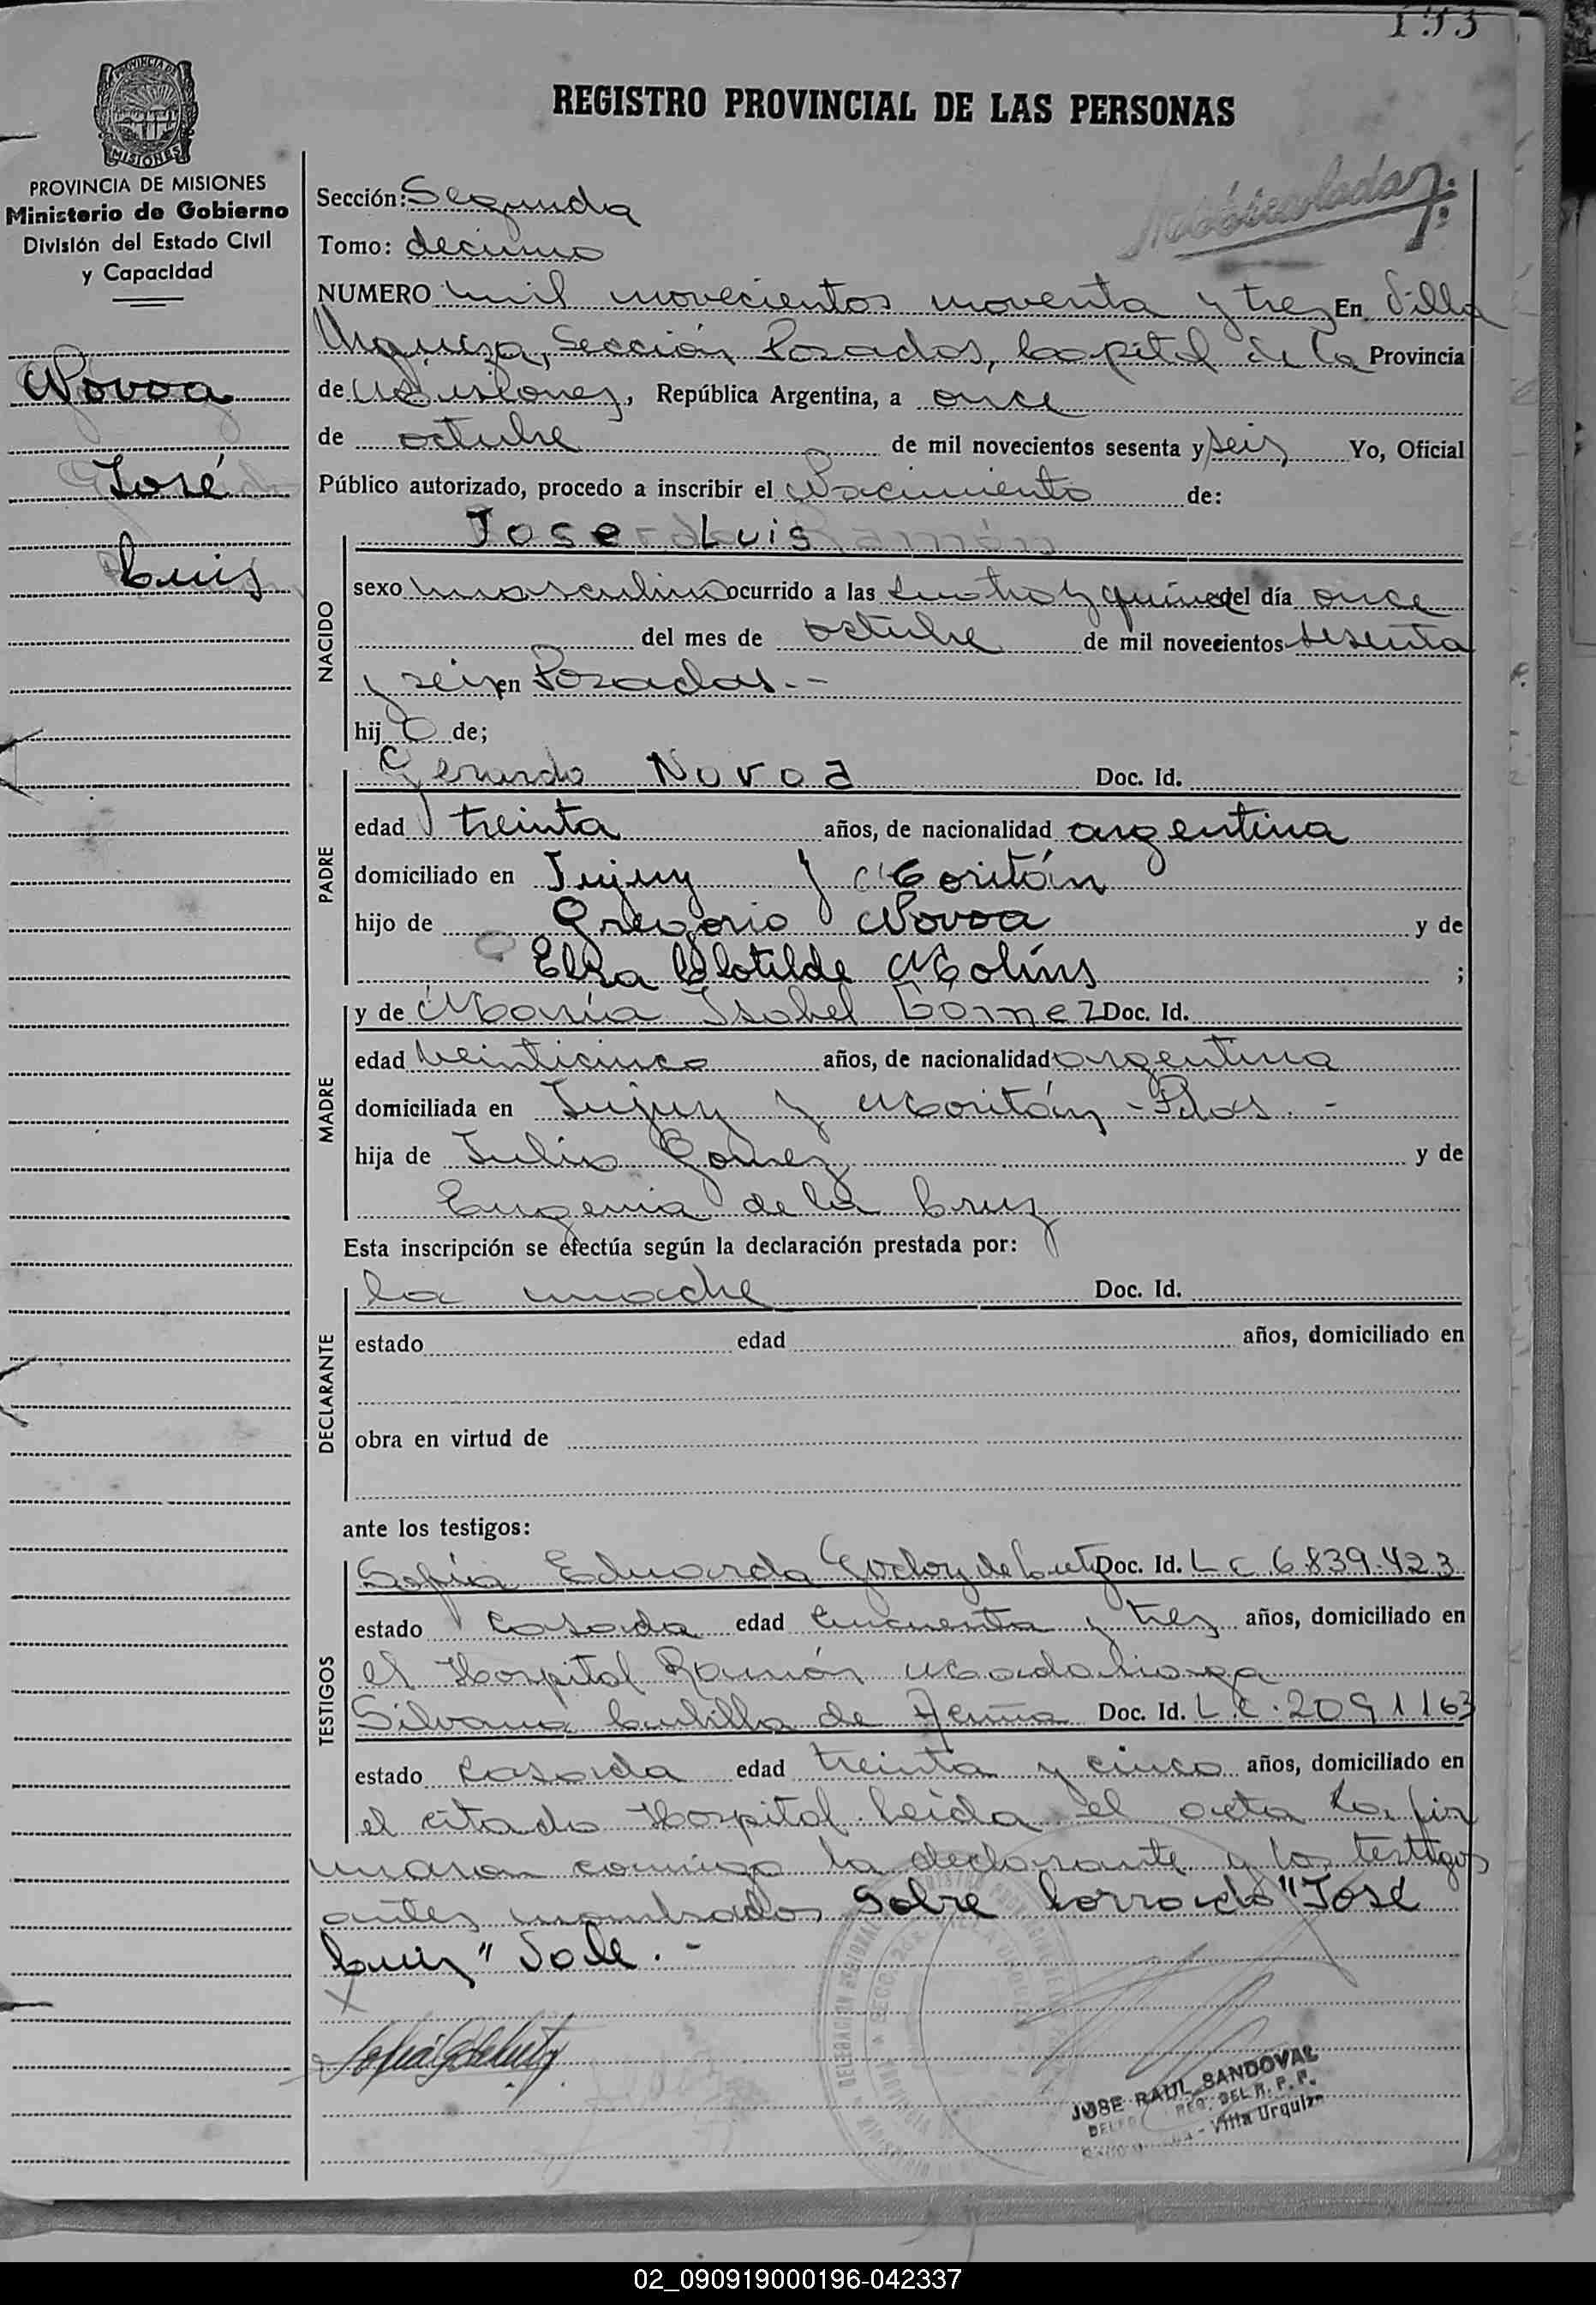 193
PROVINCIA DE
MISIONES
PROVINCIA DE MISIONES
Ministerio de Gobierno
División del Estado Civil
y Capacidad
Novoa
José
Luis
REGISTRO PROVINCIAL DE LAS PERSONAS
Sección: Segunda
Tomo: decimo
NUMERO mil novecientos noventa y tres En Villa
Urquiza, Sección Posadas, Capital de la Provincia
de Misiones, República Argentina, a once
de octubre de mil novecientos sesenta y seis Yo, Oficial
Público autorizado, procedo a inscribir el Nacimiento de:
NACIDO
Jose Luis
sexo masculino ocurrido a las y quince del día once
del mes de octubre de mil novecientos sesenta
y seis en Posadas.-
hij o de;
PADRE
Gerardo Novoa Doc. Id.
edad treinta años, de nacionalidad argentina
domiciliado en Jujuy y Moritán
hijo de Gregorio Novoa y de
Elsa Clotilde Molins ;
MADRE
y de María Isabel Gomez Doc. Id.
edad veinticinco años, de nacionalidad argentina
domiciliada en Jujuy y Moritán - Pdas. -
hija de Julio Gomez y de
Eugenia de la Cruz
Esta inscripción se efectúa según la declaración prestada por:
DECLARANTE
la madre Doc. Id.
estado edad años, domiciliado en
obra en virtud de
ante los testigos:
TESTIGOS
Sofía Eduarda Godoy de Doc. Id. L C 6.839.423
estado Casada edad cincuenta y tres años, domiciliado en
el Hospital Ramón Madariaga
Silvana de Doc. Id. L.C. 2091163
estado Casada edad treinta y cinco años, domiciliado en
el citado Hospital. Leída el acta la fir
maron conmigo la declarante y los testigos
antes nombrados Sobre borrado "José
Luis" Vale. -
JOSE RAUL SANDOVAL
REG. DEL R. P. P.
- Villa Urquiza
02_090919000196-042337